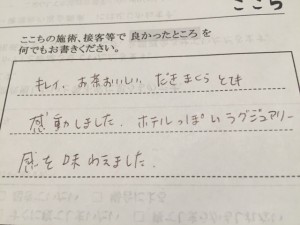 ここち
ここちの施術、接客等で 良かったところ を
何でもお書きください。
キレイ、お茶おいしい だきまくらとても
感動しました、ホテルっぽいラグジュアリー
感を味わえました